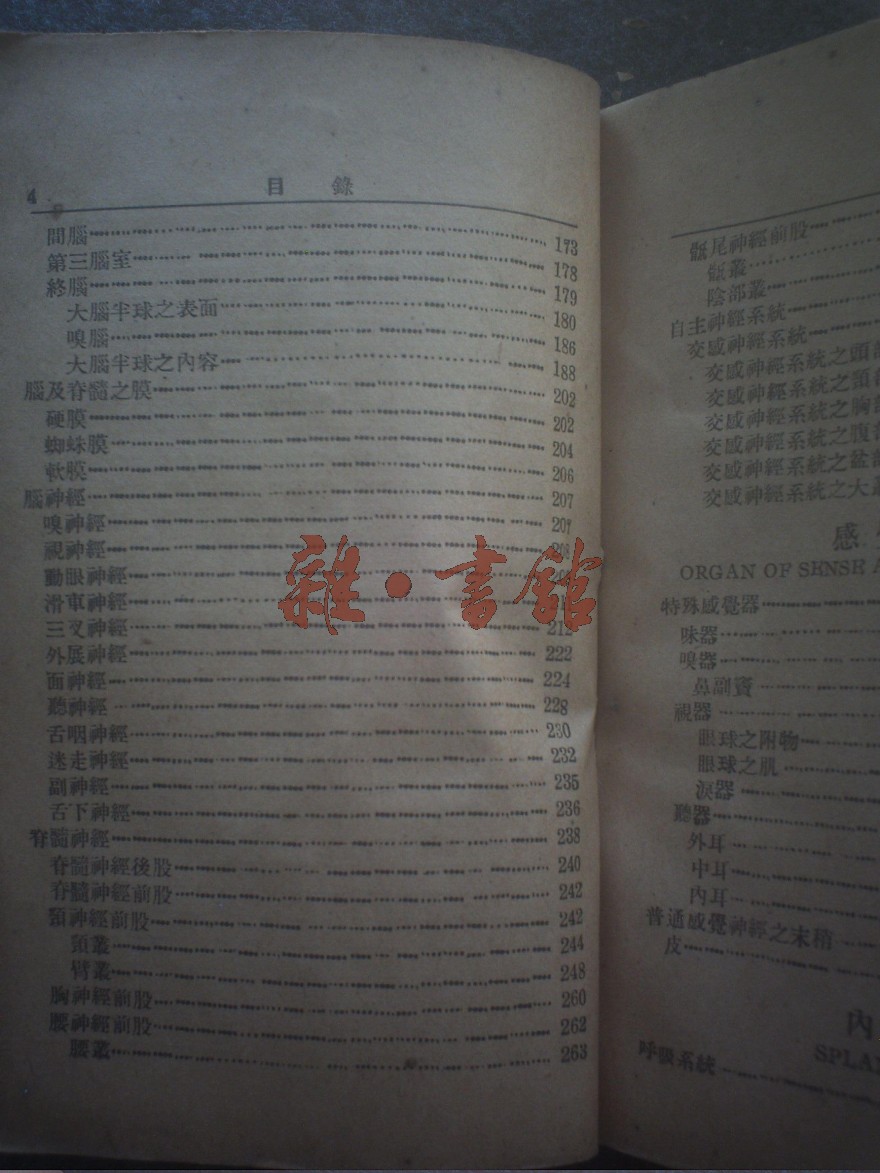 4
目 錄
間腦 173
第三腦室 178
終腦 179
大腦半球之表面 180
嗅腦 186
大腦半球之內容 188
腦及脊髓之膜 202
硬膜 202
蜘蛛膜 204
軟膜 206
腦神經 207
嗅神經 207
視神經 208
動眼神經
滑車神經
三叉神經 212
外展神經 222
面神經 224
聽神經 228
舌咽神經 230
迷走神經 232
副神經 235
舌下神經 236
脊髓神經 238
脊髓神經後股 240
脊髓神經前股 242
頸神經前股 242
頸叢 244
臂叢 248
胸神經前股 260
腰神經前股 262
腰叢 263
雜·書館
骶尾神經前股
骶叢
陰部叢
自主神經系統
交感神經系統
交感神經系統之頭部
交感神經系統之頸部
交感神經系統之胸部
交感神經系統之腹部
交感神經系統之盆部
交感神經系統之大叢
感
ORGAN OF SENSE A
特殊感覺器
味器
嗅器
鼻副竇
視器
眼球之附物
眼球之肌
淚器
聽器
外耳
中耳
內耳
普通感覺神經之末稍
皮
內
SPLA
呼吸系統